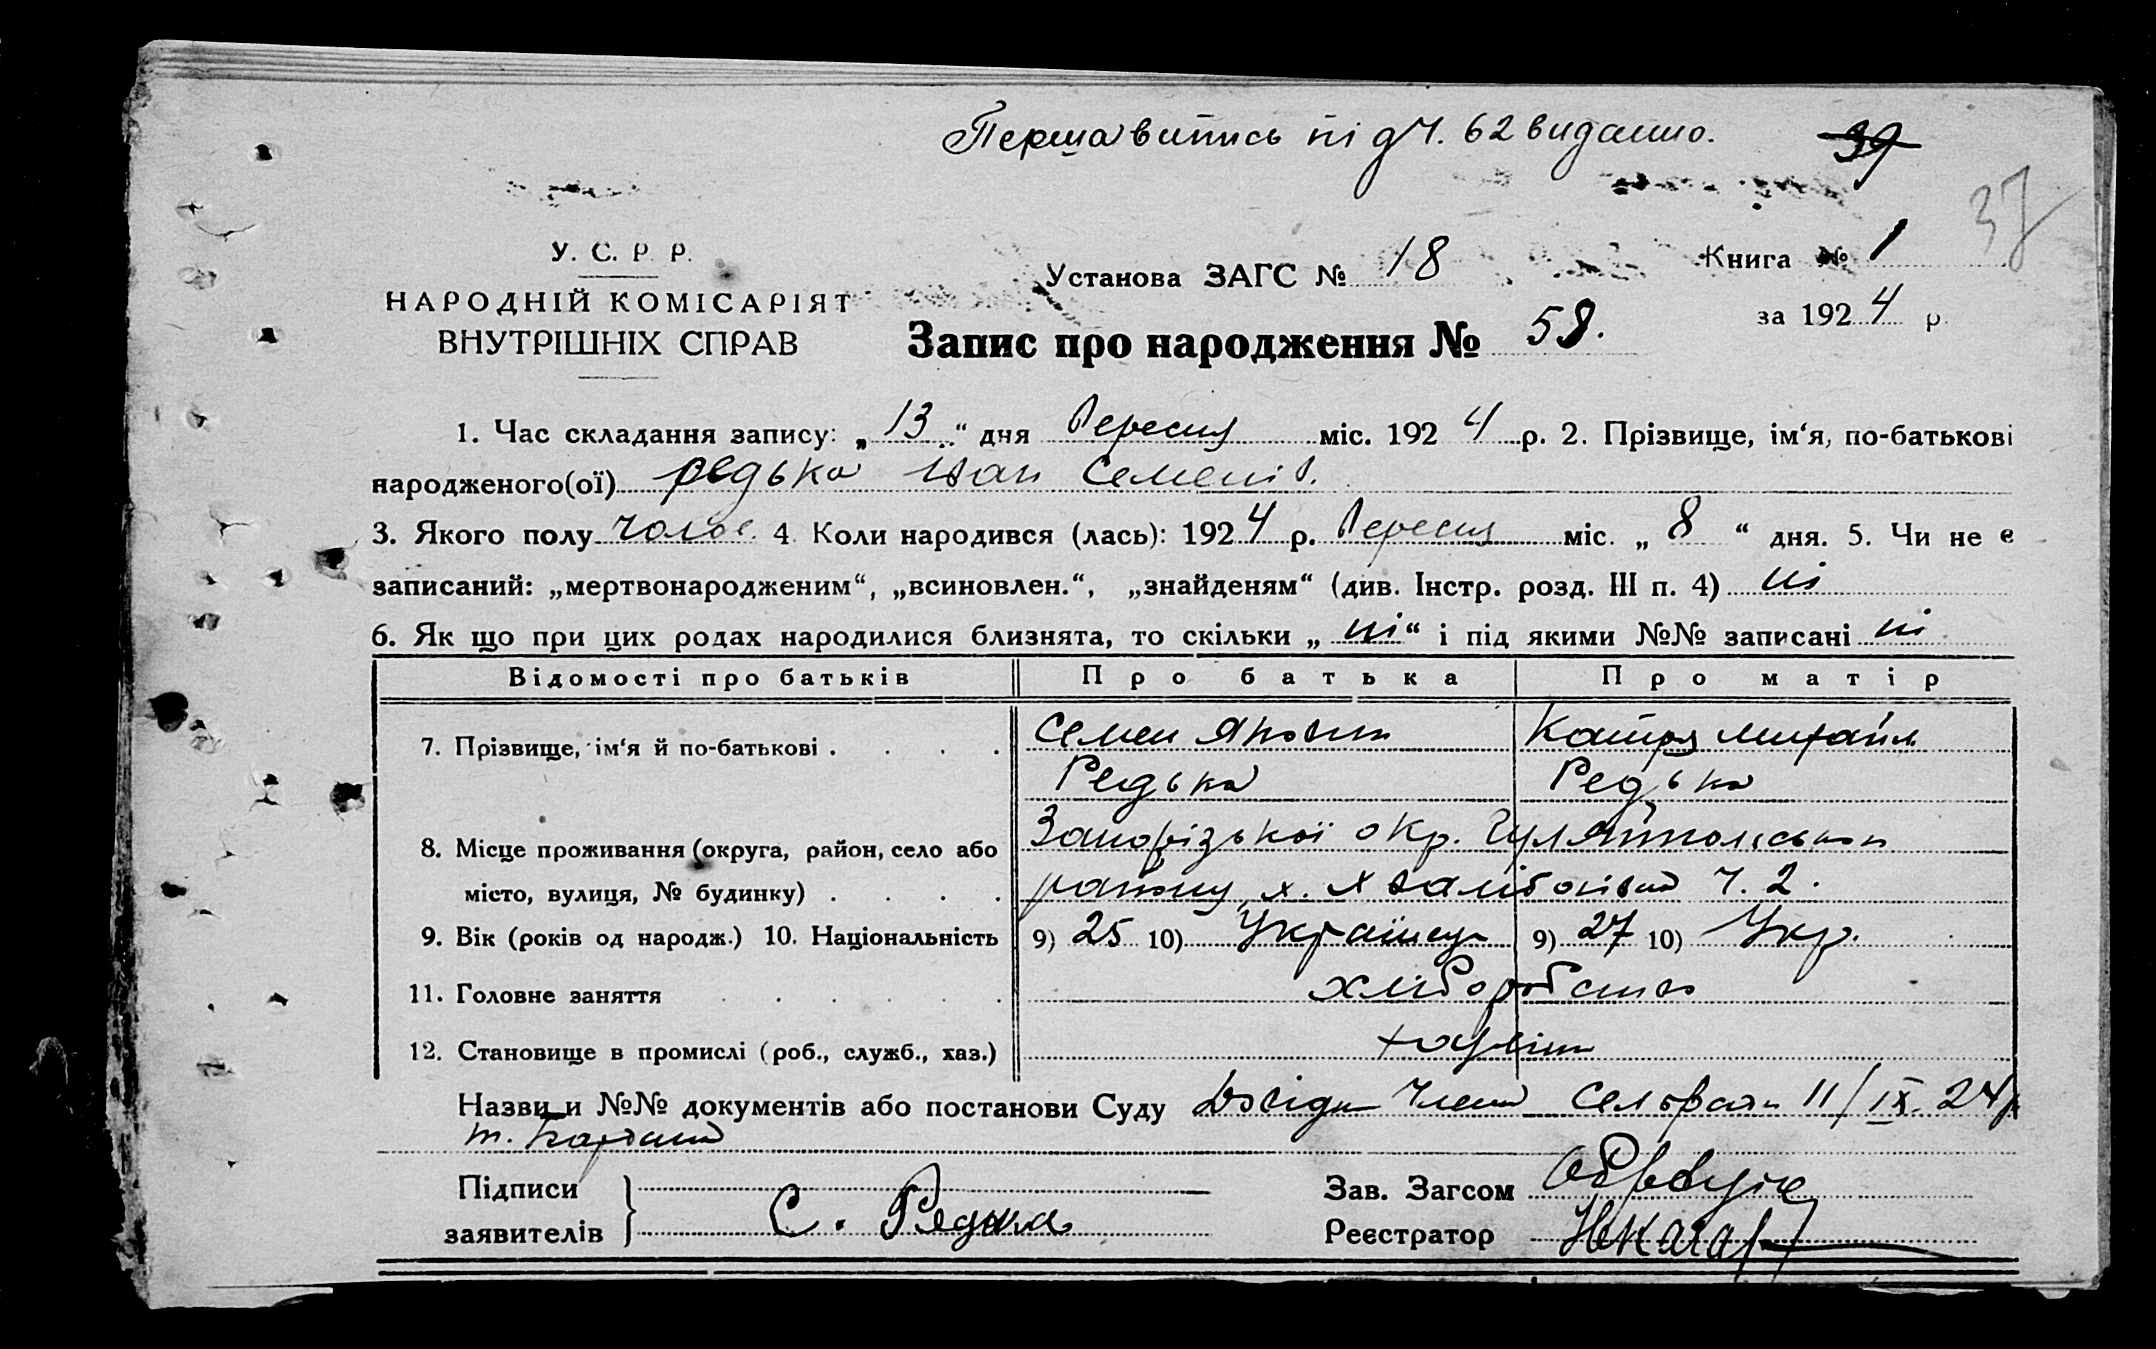 Перша випись під Ч. 62 видано. 39
37
У. С. Р. Р.
НАРОДНІЙ КОМІСАРІЯТ
ВНУТРІШНІХ СПРАВ
Установа ЗАГС № 18
Книга № 1
за 1924 р.
Запис про народження № 58.
1. Час складання запису: „13“ дня Вересня міс. 1924 р. 2. Прізвище, ім‘я, по-батькові
народженого(ої) Редька Іван Семенів.
3. Якого полу чолов. 4. Коли народився (лась): 1924 р. Вересня міс. „8“ дня. 5. Чи не є
записаний: „мертвонародженим“, „всиновлен.“, „знайденям“ (див. Інстр. розд. III п. 4) ні
6. Як що при цих родах народилися близнята, то скільки „ні“ і під якими №№ записані ні
Відомості про батьків Про батька Про матір
7. Прізвище, ім‘я й по-батькові . . . . Семен Якович Катря Михайл
Редька Редька
8. Місце проживання (округа, район, село або Запорізької окр. Гуляйпольськ
місто, вулиця, № будинку) . . . . району, х. Ч. 2.
9. Вік (років од народж.) 10. Національність 9) 25 10) Українець 9) 27 10) Укр.
11. Головне заняття . . . . . . хліборобство
12. Становище в промислі (роб., служб., хаз.) хазяїн
Назви и №№ документів або постанови Суду Досвідч Член Сельради 11/IX. 24 р
т.
Підписи
заявителів С. Редька
Зав. Загсом
Реєстратор